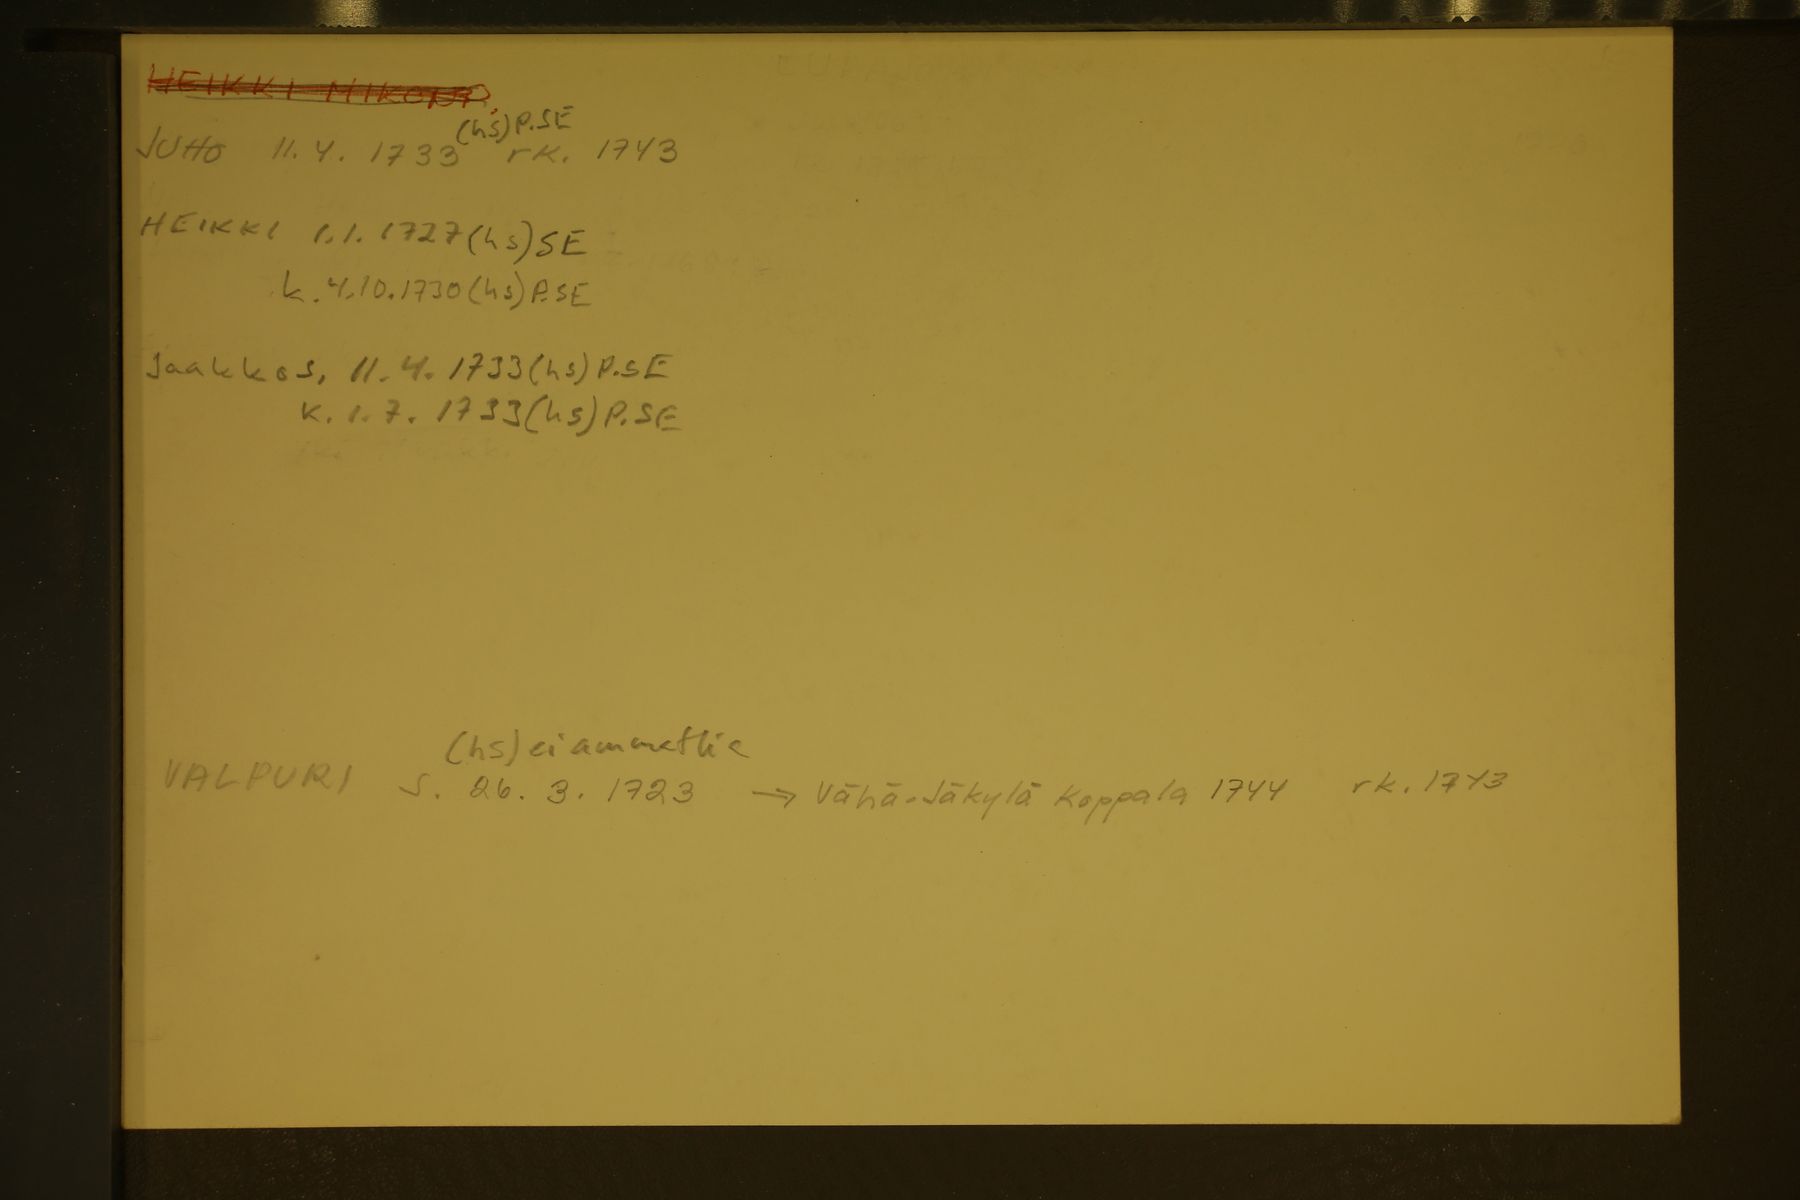 HEIKKI MIKONP.
(hs) P.SE
JUHO 11.4. 1733 rk. 1743
HEIKKI 1.1. 1727 (hs) SE
k. 4.10.1730 (hs) P.SE
Jaakko s. 11.4. 1733 (hs) P.SE
k. 1.7. 1733 (hs) P.SE
(hs) ei ammattia
VALPURI S. 26. 3. 1723 → Vähä-Jäkylä Koppala 1744 rk. 1743